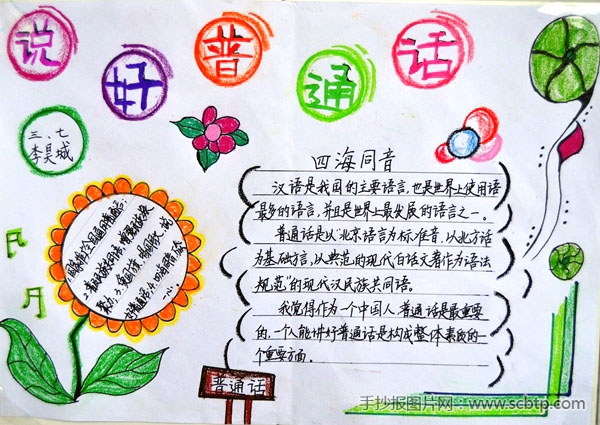 说好普通话
三、七
李昊城
四海同音
汉语是我国的主要语言,也是世界上使用语
最多的语言,并且是世界上最发展的语言之一。
普通话是以北京语言为标准音,以北方话
为基础言,以典范的现代白话文著作为语法
规范"的现代汉民族共同语。
我觉得作为一个中国人普通话是最重要
的,一个人能讲好普通话是构成整体素质的一
个重要方面。
普通话
手抄报图片网:www.scbtp.com